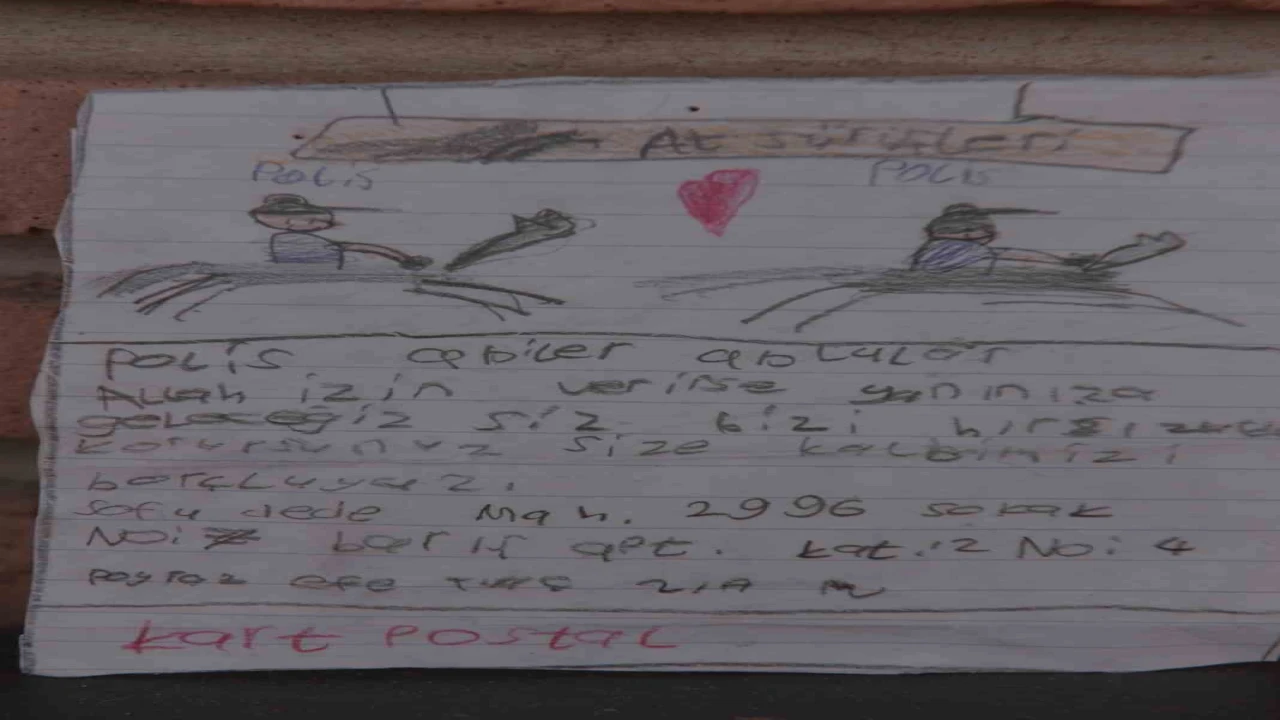 At sürüşleri
POLİS POLİS
POLİS abiler ablalar
Allah izin verirse yanınıza
geleceğiz siz bizi
korursunuz size kalbimizi
borçluyuz.
Sofu dede Mah. 2996 sokak
No: barış apt. kat:2 No: 4
Poyraz efe 2/A
kart POSTAL